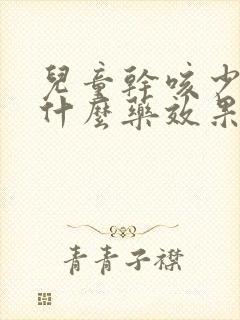 兒童幹咳少
什麼藥效果
青青子襟